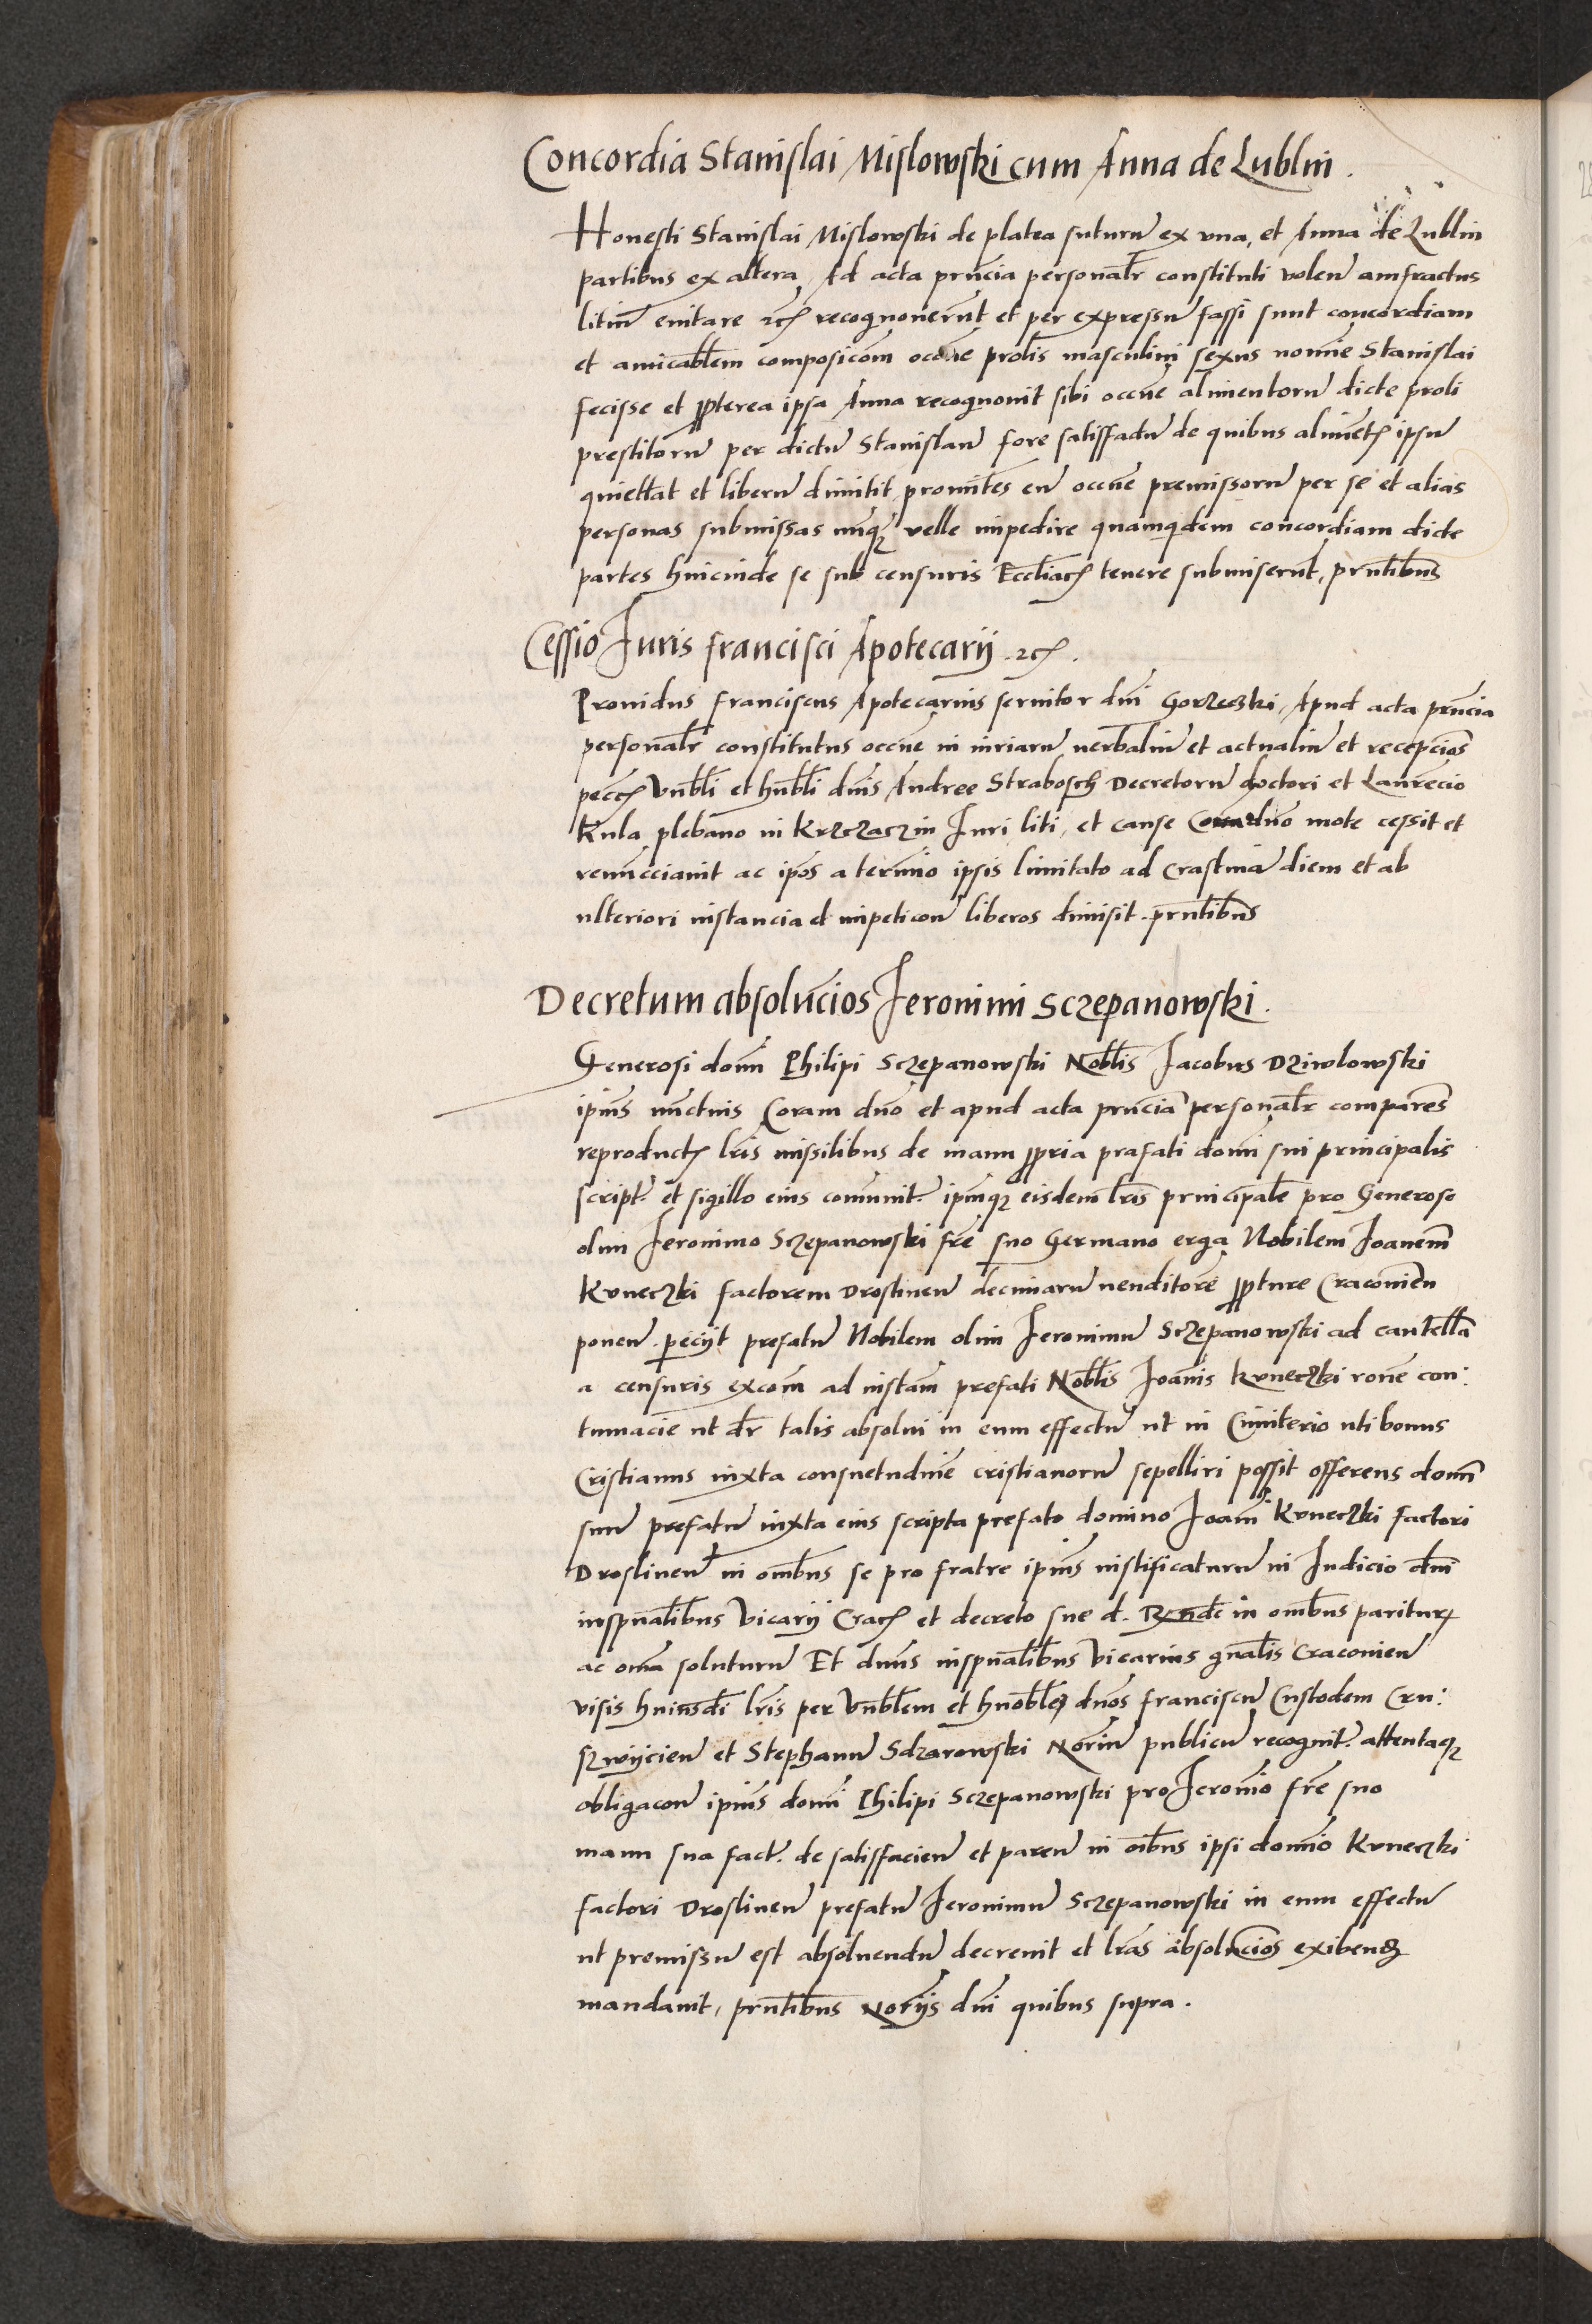 Concordia Stanislai Mislowski cum Anna de Lublin.
Honesti Stanislai Mislowski de platea suturũ ex vna, et Anna de Lublin
partibus ex altera, Ad acta prñcia personalr̃ constituti volen̄ amfractus
litiũ euitare etc̃ recognouerũt et per expressũ fassi sunt concordiam
et amicablẽm composicõm occõne prolis masculini sexus nomĩe Stanislai
fecisse et ꝓpterea ipsa Anna recognouit sibi occõne alimentorũ dicte proli
prestitorũ per dictũ Stanislaũ fore satisfactũ de quibus alimẽt̃ ipsũ
quiettat et liberũ dimitit promitẽs eũ occõne premissorũ per se et alias
personas submissas nũqꝫ velle impedire quamqdem concordiam dicte
partes hincinde se sub censuris Eccliac̃ tenere submiserũt, prñtibus
Cessio Iuris francisci Apotecarij .etc̃.
Prouidus franciscus Apotecarius seruitor dñi Gorzeczki, Apud acta prñcia
personalr̃ constitutus occõne in iniriarũ uerbaliũ et actualiũ et recepciõs
pecc̃ Vñbli et hñbli dñis Andree Strabosch Decretorũ doctori et Laurẽcio
Kula plebano in Krzczaczin Iuri liti, et cause Coram dño mote cessit et
renũcciauit ac ip̃os a termĩo ipsis limitato ad Crastinã diem et ab
ulteriori instancia et impeticoñ liberos dimisit. prñtibus
Decretum absolucĩos Ieronimi Sczepanowski.
Generosi domĩ Philipi Sczepanowski Nobl̃is Iacobus Dziwlowski
ip̃ius nũctius Coram dño et apud acta prñcia personalr̃ comparẽs
reproduct̃ lr̃is missilibus de manu ꝓpria prafati domĩ sui principalis
script. et sigillo eius comunit. ip̃mqꝫ eisdem lr̃is principalẽ pro Generoso
olim Ieronimo Sczepanowski fr̃e suo Germano erga Nobilem Ioanem̃
Kuneczki factorem Droslineñ decimarũ uenditorẽ ꝓpture Cracouieñ
poneñ. pecijt prefatũ Nobilem olim Ieronimũ Sczepanowski ad cautellã
a censuris excom̃ ad instañ prefati Nobl̃is Ioañis Kuneczki rone con:
tumacie ut dr̃ talis absolui in eum effectũ ut in Cimiterio uti bonus
Cristianus iuxta consuetudinẽ cristianorũ sepelliri possit offerens domĩ
suũ prefatũ iuxta eius scripta prefato domino Ioañi Kuneczki factori
Droslineñ in omĩbus se pro fratre ip̃ius iustificaturũ in Iudicio dñi
inspũalibus Vicarij Crac̃ et decreto sue d. Rnde in omĩbus pariturũ
ac om̃ia soluturũ Et dñus inspũalibus Vicarius gñalis Cracouieñ
visis huiusdi lr̃is per Vñblem et hnobl̃es dños franciscũ Custodem Cru:
szwijcieñ et Stephanũ Sdzarowski Noriũ publicũ recognit. attentaqꝫ
obligacoñ ip̃ius domĩ Philipi Sczepanowski pro Ieronimo fr̃e suo
manu sua fact. de satisfacieñ et pareñ in oĩbus ipsi domĩo Kuneczki
factori Droslineñ prefatũ Ieronimũ Sczepanowski in eum effectũ
ut premissũ est absoluendũ decreuit et lr̃as absolucĩos exibend
mandauit, prñtibus Norijs dñi quibus supra.